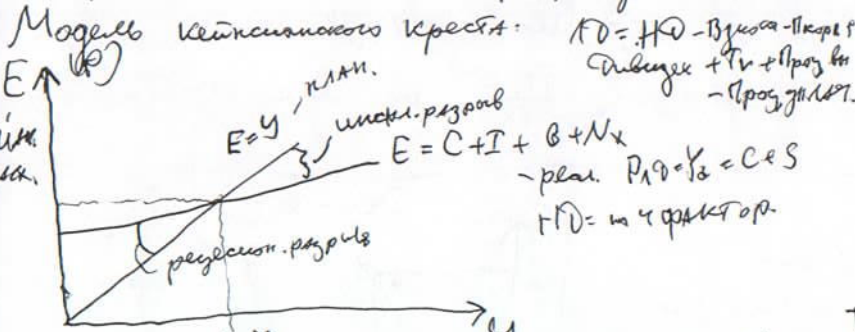 Модель кейнсианского креста:
ЛД = НД - Взносы - Пкорп
Дивиден + Tr + Проц вы
- Проц. плат.
E (P)
E=Y, план.
инфл. разрыв
E = C+I+G+Nx
- реал. РЛД=Yd=C+S
НД= 4 фактор.
рецессион. разрыв
Y